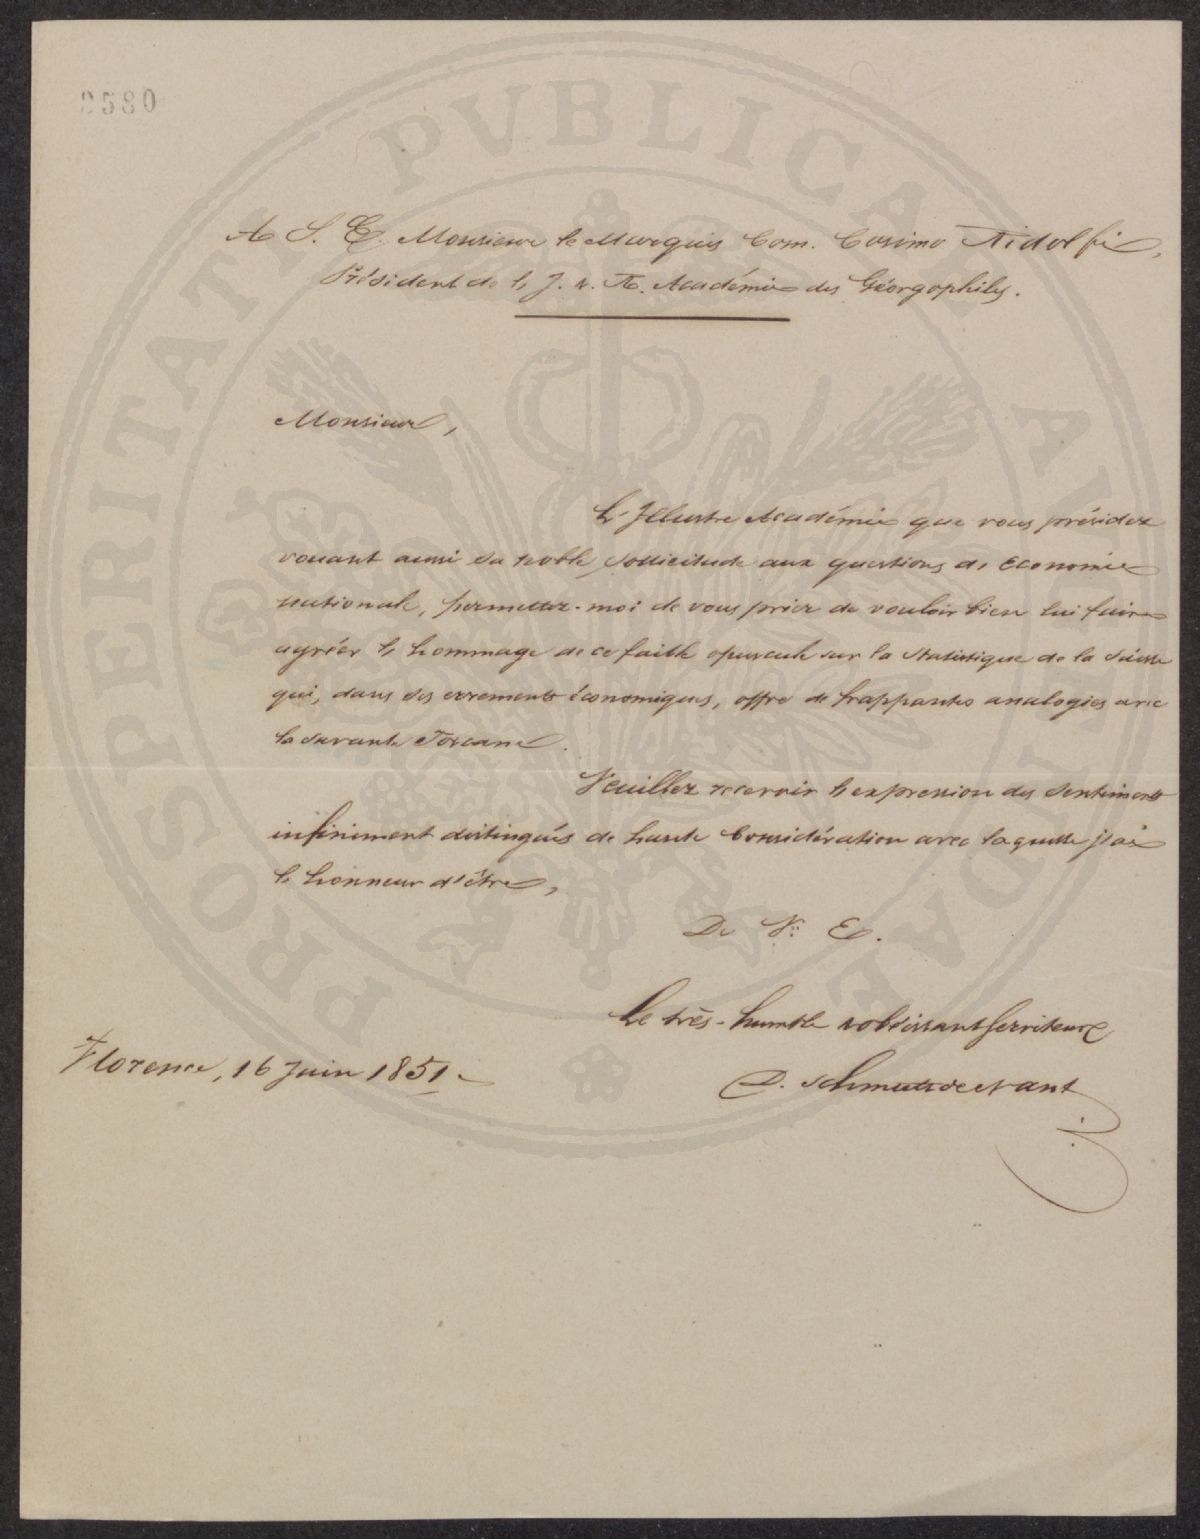 2580
PROSPERITATI PVBLICAE AVGENDAE
A S. E. Monsieur le Marquis Com. Cosimo Ridolfi,
Président de l' J. et R. Académie des Géorgophiles.
Monsieur,
L'Illustre Académie que vous présidez
vouant aussi sa noble sollicitude aux questions de Economie
nationale, permettez-moi de vous prier de vouloir bien lui faire
agréer l'hommage de ce faible opuscule sur la Statistique de la Suisse
qui, dans ses errements économiques, offre de frappantes analogies avec
la savante Toscane.
Veuillez recevoir l'expression des sentiments
infiniment distingués de haute Considération avec laquelle j'ai
l'honneur d'être,
De V. E.
Le très-humble obéissant serviteur
Florence, 16 Juin 1851.